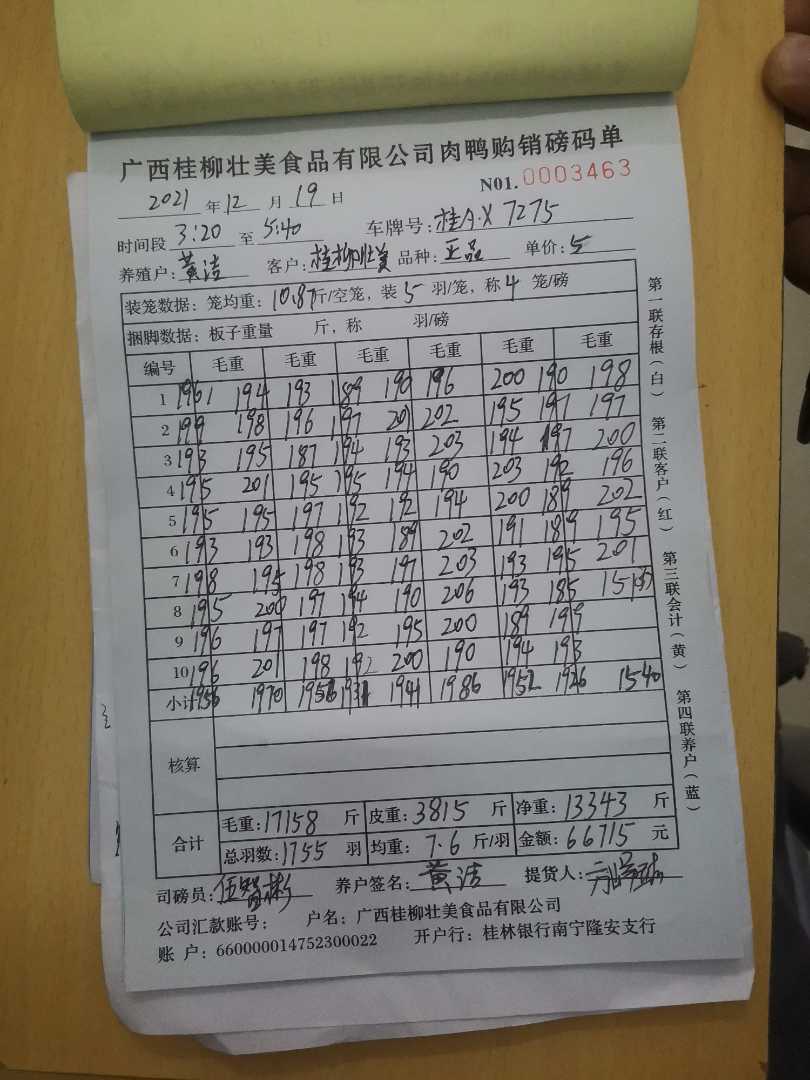 广西桂柳壮美食品有限公司肉鸭购销磅码单
2021 年 12 月 19 日 N01. 0003463
时间段 3:20 至 5:40 车牌号: 桂A·X 7275
养殖户: 黄洁 客户: 桂柳壮美 品种: 正品 单价: 5
装笼数据: 笼均重: 10.87 斤/空笼, 装 5 羽/笼, 称 4 笼/磅
捆脚数据: 板子重量 斤, 称 羽/磅
编号 毛重 毛重 毛重 毛重 毛重 毛重
1 1961 194 193 189 190 196 200 190 198
2 199 198 196 197 201 202 195 197 197
3 193 195 187 194 193 203 194 197 200
4 195 201 195 195 194 190 203 192 196
5 195 195 197 192 192 194 200 189 202
6 193 193 198 193 189 202 191 189 195
7 198 195 198 193 197 203 193 195 201
8 195 200 197 194 190 206 193 185
9 196 197 197 192 195 200 189 199
10 196 201 198 192 200 190 194 193
小计 1956 1970 1956 1931 1941 1986 1952 1926 1540
核算
合计 毛重: 17158 斤 皮重: 3815 斤 净重: 13343 斤
总羽数: 1755 羽 均重: 7.6 斤/羽 金额: 66715 元
司磅员: 伍智彬 养户签名: 黄洁 提货人:
公司汇款账号: 户名: 广西桂柳壮美食品有限公司
账 户: 660000014752300022 开户行: 桂林银行南宁隆安支行
第一联存根(白) 第二联客户(红) 第三联会计(黄) 第四联养户(蓝)